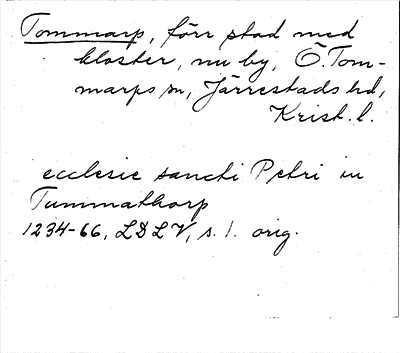 Tommarp, förr stad med
kloster, nu by, Ö. Tom-
marps sn, Järrestads hd,
Krist. l.
ecclesie sancti Petri in
Tummathorp
1234-66, LDLV, s. 1. orig.